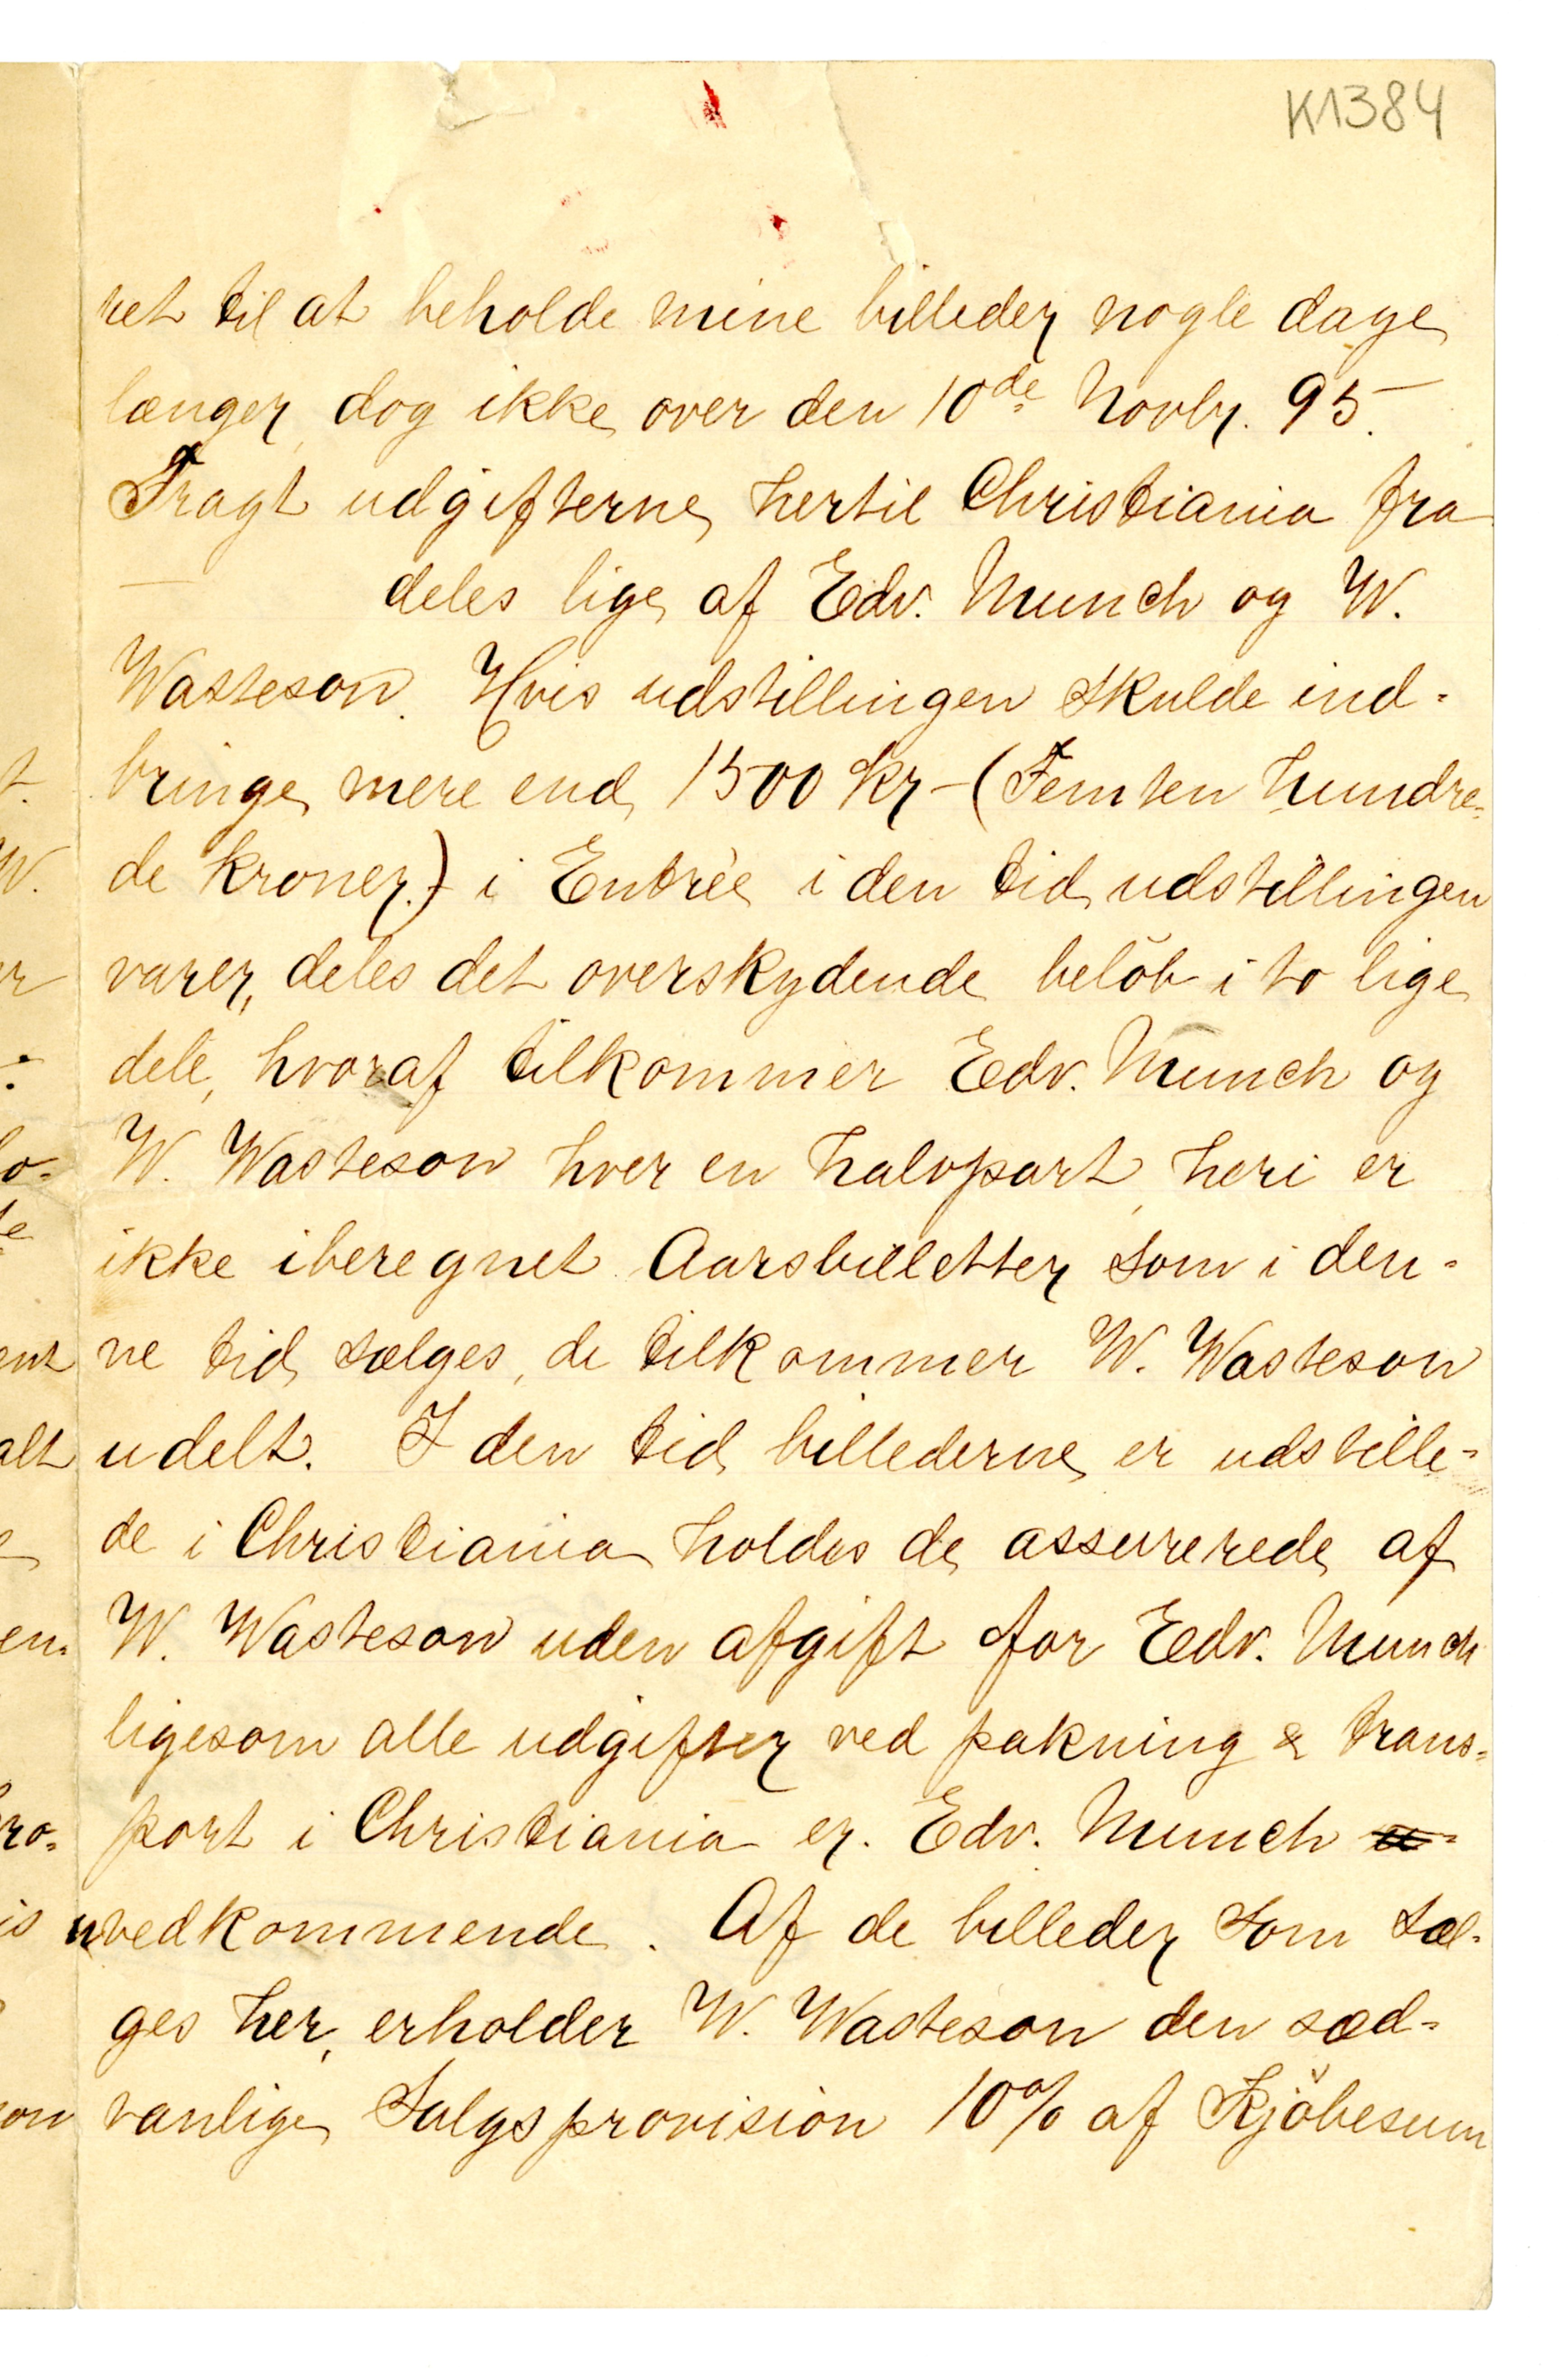 K1384
ret til at beholde mine billeder nogle dage
længer, dog ikke over den 10de Novbr. 95.
Fragt udgifterne hertil Christiania fra
— deles lige af Edv. Munch og W.
Wasteson. Hvis udstillingen skulde ind-
bringe mere end 1500 kr – (Femten hundre-
de kroner.) i Entrèe i den tid udstillingen
varer, deles det overskydende belöb i to lige
dele, hvoraf tilkommer Edv. Munch og
W. Wasteson hver en halvpart, heri er
ikke iberegnet Aarsbilletter som i den-
ne tid sælges, de tilkommer W. Wasteson
udelt. I den tid billederne er udstille-
de i Christiania holdes de assurerede af
W. Wasteson uden afgift for Edv. Munch
ligesom alle udgifter ved pakning & trans-
port i Christiania er. Edv. Munch u-
uvedkommende. Af de billeder som sæl-
ges her, erholder W. Wasteson den sæd-
vanlige Salgsprovision 10% af Kjöbesum
t.
W.
er
lo-
te
ent
alt
e
en-
bro-
is
son